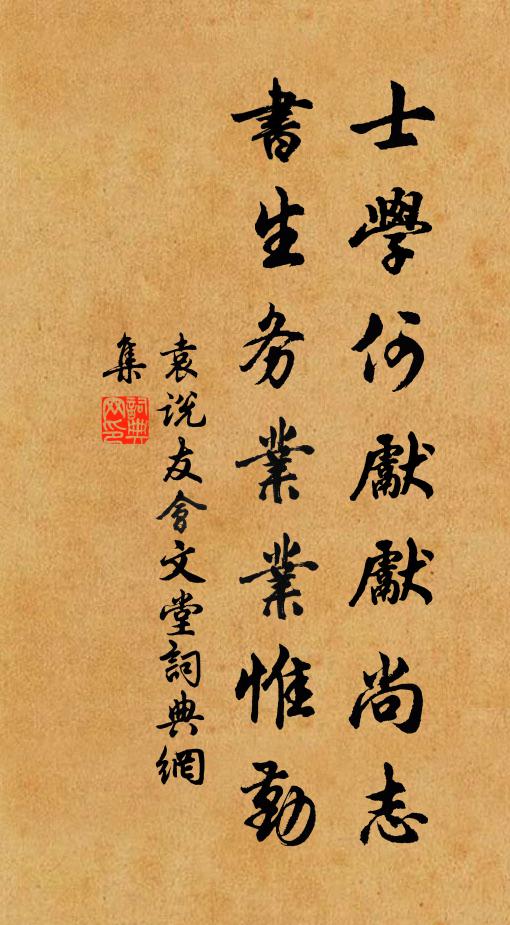 士學何獻獻尚志
書生务業業惟勤
袁说友會文堂詞典網
集
詞典網印